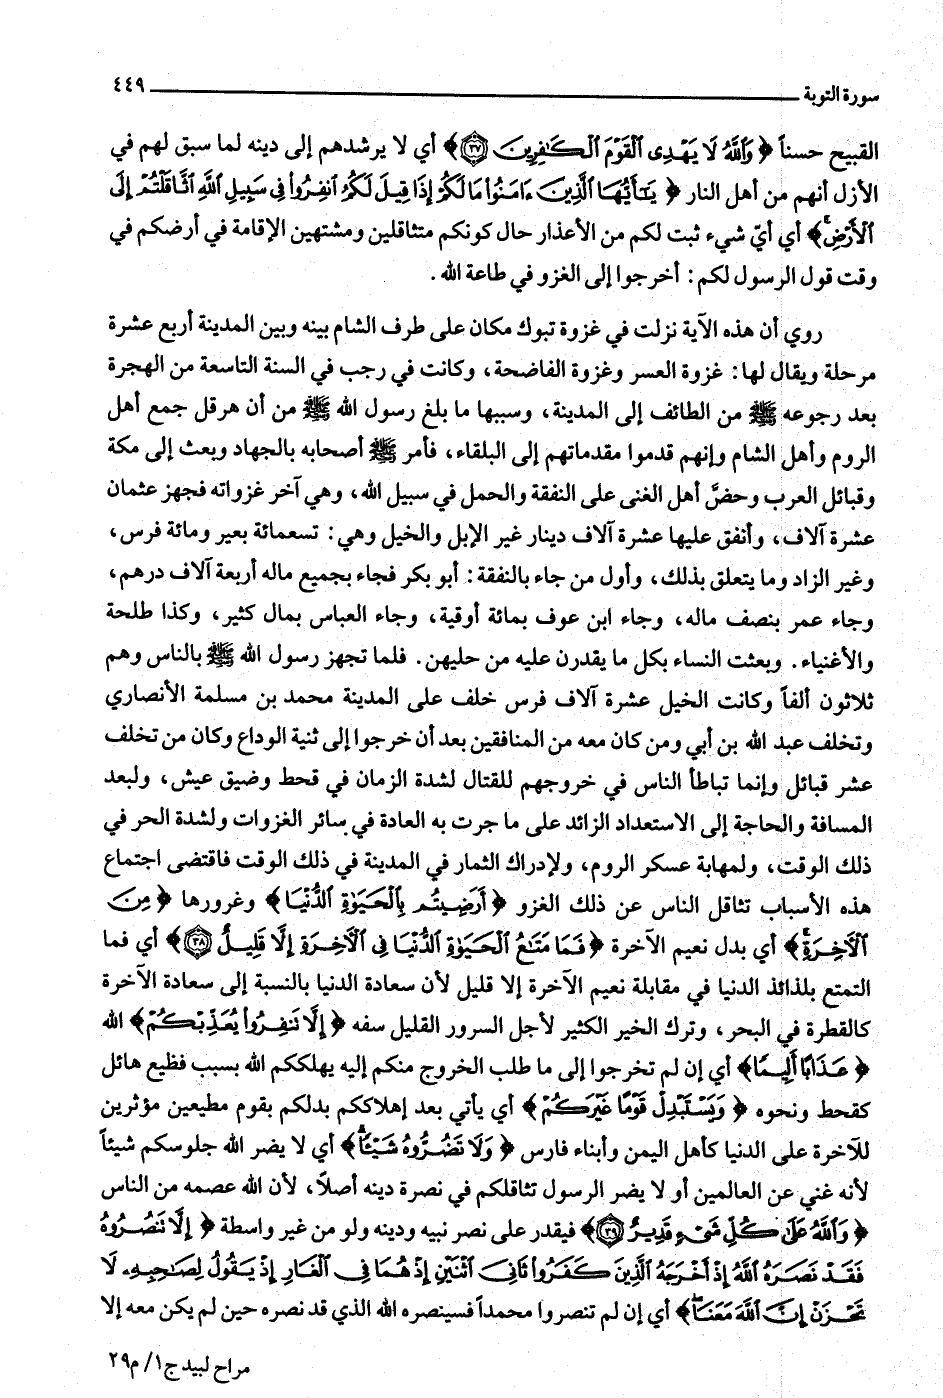 سورة التوبة ٤٤٩
القبيح حسناً ﴿ وَاللَّهُ لَا يَهْدِى الْقَوْمَ الْكَافِرِينَ ٣٧ ﴾ أي لا يرشدهم إلى دينه لما سبق لهم في
الأزل أنهم من أهل النار ﴿ يَٰٓأَيُّهَا الَّذِينَ ءَامَنُوا مَا لَكُمْ إِذَا قِيلَ لَكُمُ انفِرُوا فِى سَبِيلِ اللَّهِ اثَّاقَلْتُمْ إِلَى
الْأَرْضِ ﴾ أي أيّ شيء ثبت لكم من الأعذار حال كونكم متثاقلين ومشتهين الإقامة في أرضكم في
وقت قول الرسول لكم: أخرجوا إلى الغزو في طاعة الله.
روي أن هذه الآية نزلت في غزوة تبوك مكان على طرف الشام بينه وبين المدينة أربع عشرة
مرحلة ويقال لها: غزوة العسر وغزوة الفاضحة، وكانت في رجب في السنة التاسعة من الهجرة
بعد رجوعه ﷺ من الطائف إلى المدينة، وسببها ما بلغ رسول الله ﷺ من أن هرقل جمع أهل
الروم وأهل الشام وإنهم قدموا مقدماتهم إلى البلقاء، فأمر ﷺ أصحابه بالجهاد وبعث إلى مكة
وقبائل العرب وحضَّ أهل الغنى على النفقة والحمل في سبيل الله، وهي آخر غزواته فجهز عثمان
عشرة آلاف، وأنفق عليها عشرة آلاف دينار غير الإبل والخيل وهي: تسعمائة بعير ومائة فرس،
وغير الزاد وما يتعلق بذلك، وأول من جاء بالنفقة: أبو بكر فجاء بجميع ماله أربعة آلاف درهم،
وجاء عمر بنصف ماله، وجاء ابن عوف بمائة أوقية، وجاء العباس بمال كثير، وكذا طلحة
والأغنياء. وبعثت النساء بكل ما يقدرن عليه من حليهن. فلما تجهز رسول الله ﷺ بالناس وهم
ثلاثون ألفاً وكانت الخيل عشرة آلاف فرس خلف على المدينة محمد بن مسلمة الأنصاري
وتخلف عبد الله بن أبي ومن كان معه من المنافقين بعد أن خرجوا إلى ثنية الوداع وكان من تخلف
عشر قبائل وإنما تباطأ الناس في خروجهم للقتال لشدة الزمان في قحط وضيق عيش، ولبعد
المسافة والحاجة إلى الاستعداد الزائد على ما جرت به العادة في سائر الغزوات ولشدة الحر في
ذلك الوقت، ولمهابة عسكر الروم، ولإدراك الثمار في المدينة في ذلك الوقت فاقتضى اجتماع
هذه الأسباب تثاقل الناس عن ذلك الغزو ﴿ أَرَضِيتُم بِالْحَيَوٰةِ الدُّنْيَا ﴾ وغرورها ﴿ مِنَ
الْآخِرَةِ ﴾ أي بدل نعيم الآخرة ﴿ فَمَا مَتَٰعُ الْحَيَوٰةِ الدُّنْيَا فِى الْآخِرَةِ إِلَّا قَلِيلٌ ٣٨ ﴾ أي فما
التمتع بلذائذ الدنيا في مقابلة نعيم الآخرة إلا قليل لأن سعادة الدنيا بالنسبة إلى سعادة الآخرة
كالقطرة في البحر، وترك الخير الكثير لأجل السرور القليل سفه ﴿ إِلَّا تَنفِرُوا يُعَذِّبْكُمْ ﴾ الله
﴿ عَذَابًا أَلِيمًا ﴾ أي إن لم تخرجوا إلى ما طلب الخروج منكم إليه يهلككم الله بسبب فظيع هائل
كقحط ونحوه ﴿ وَيَسْتَبْدِلْ قَوْمًا غَيْرَكُمْ ﴾ أي يأتي بعد إهلاككم بدلكم بقوم مطيعين مؤثرين
للآخرة على الدنيا كأهل اليمن وأبناء فارس ﴿ وَلَا تَضُرُّوهُ شَيْئًا ﴾ أي لا يضر الله جلوسكم شيئاً
لأنه غني عن العالمين أو لا يضر الرسول تثاقلكم في نصرة دينه أصلاً، لأن الله عصمه من الناس
﴿ وَاللَّهُ عَلَىٰ كُلِّ شَىْءٍ قَدِيرٌ ٣٩ ﴾ فيقدر على نصر نبيه ودينه ولو من غير واسطة ﴿ إِلَّا تَنصُرُوهُ
فَقَدْ نَصَرَهُ اللَّهُ إِذْ أَخْرَجَهُ الَّذِينَ كَفَرُوا ثَانِىَ اثْنَيْنِ إِذْ هُمَا فِى الْغَارِ إِذْ يَقُولُ لِصَٰحِبِهِ لَا
تَحْزَنْ إِنَّ اللَّهَ مَعَنَا ﴾ أي إن لم تنصروا محمداً فسينصره الله الذي قد نصره حين لم يكن معه إلا
مراح لبيد ج١/ م٢٩